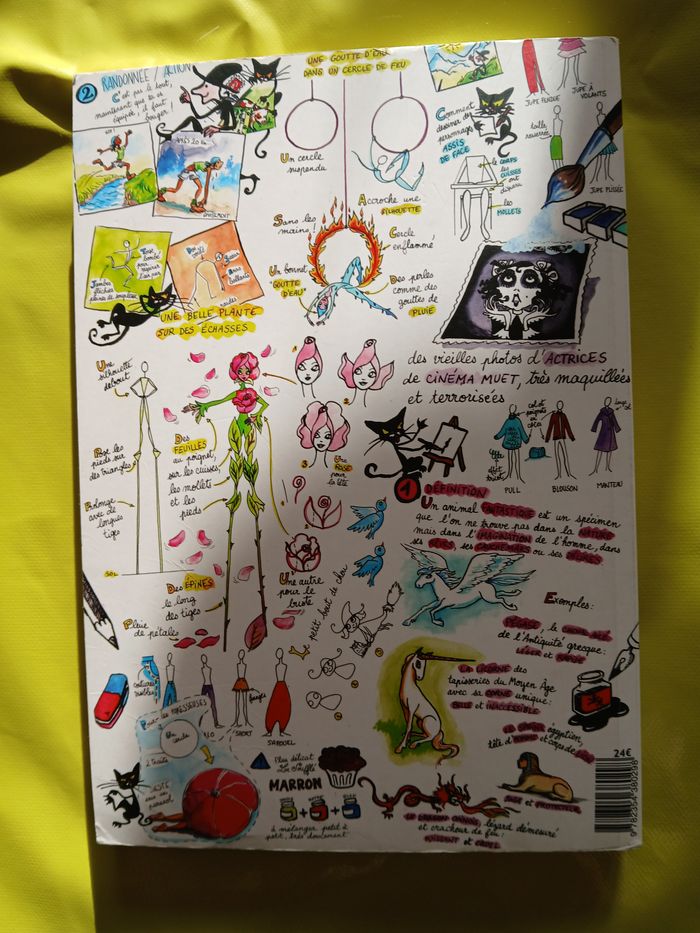 2
RANDONNÉE / ACTION
C'est pas le tout,
maintenant que tu es
équipée, il faut
bouger !
UNE GOUTTE D'EAU
DANS UN CERCLE DE FEU
Un cercle
suspendu
Accroche une
SILHOUETTE
Sans les
mains !
Cercle
enflammé
Un bonnet
"GOUTTE
D'EAU"
Des perles
comme des
gouttes de
PLUIE
Comment
dessiner des
personnages
ASSIS
DE FACE
le CORPS
les
CUISSES
ont
disparu
les
MOLLETS
JUPE FLUIDE
JUPE À
VOLANTS
taille
resserrée
JUPE PLISSÉE
Jambes
fléchies
UNE BELLE PLANTE
SUR DES ÉCHASSES
Une
silhouette
debout
Pose les
pieds sur
des triangles
Prolonge
avec de
longues
tiges
SOL
Des
FEUILLES
au poignet,
sur les cuisses,
les mollets
et les
pieds
1
2
3
Une
ROSE
pour
la tête
Des ÉPINES
le long
des tiges
Pluie
de pétales
Une autre
pour le
buste
Le petit bout de chou
des vieilles photos d'ACTRICES
de CINÉMA MUET, très maquillées
et terrorisées
col et
poignets
en
côtes
PULL
BLOUSON
MANTEAU
1 DÉFINITION
Un animal FANTASTIQUE est un spécimen
que l'on ne trouve pas dans la NATURE
mais dans l'IMAGINATION de l'homme, dans
ses RÊVES, ses CAUCHEMARS ou ses DÉLIRES
Exemples :
PÉGASE, le CHEVAL AILÉ
de l'Antiquité grecque :
LÉGER et RAPIDE
LA LICORNE des
tapisseries du Moyen Âge
avec sa CORNE unique :
BELLE et INACCESSIBLE
LE SPHINX égyptien,
tête d'HOMME et corps de LION
SAGE et PROTECTEUR
LE DRAGON CHINOIS, lézard démesuré
et cracheur de feu :
PUISSANT et CRUEL
SHORT
SAROUEL
Pour les PARESSEUSES
Un cercle
SIESTE
sous un
parasol
Plus délicat
Le Soufflé
MARRON
+ + 
à mélanger petit à
petit, très doucement
24€
9 782354 380298